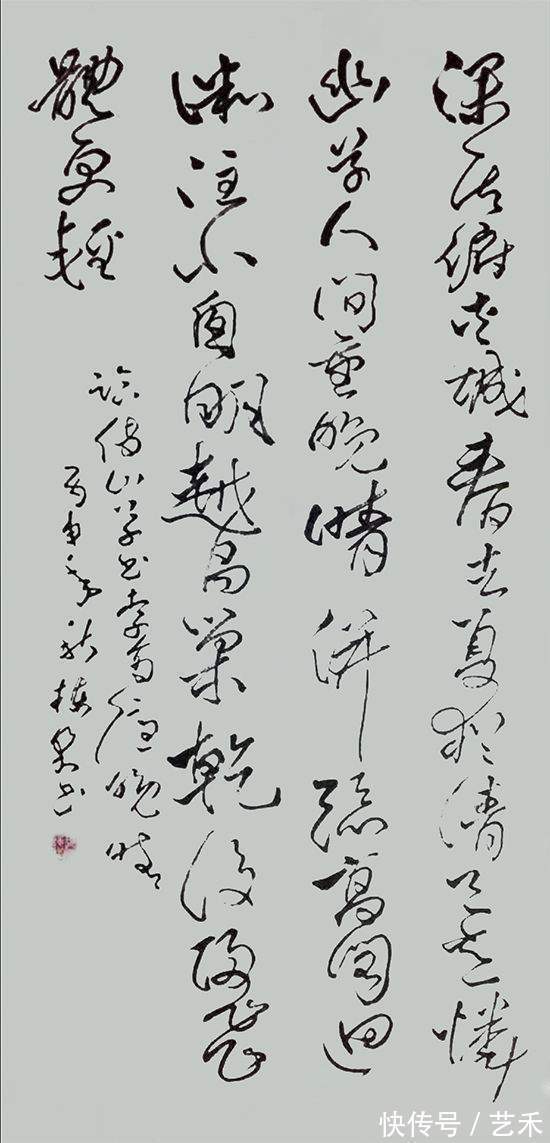 深居俯夾城春去夏猶清天意憐
幽草人間重晚晴併添高閣迥
微注小窗明越鳥巢乾後歸飛
體更輕
臨傅山草書李商隱晚晴
丙申年秋書
快传号 / 艺禾